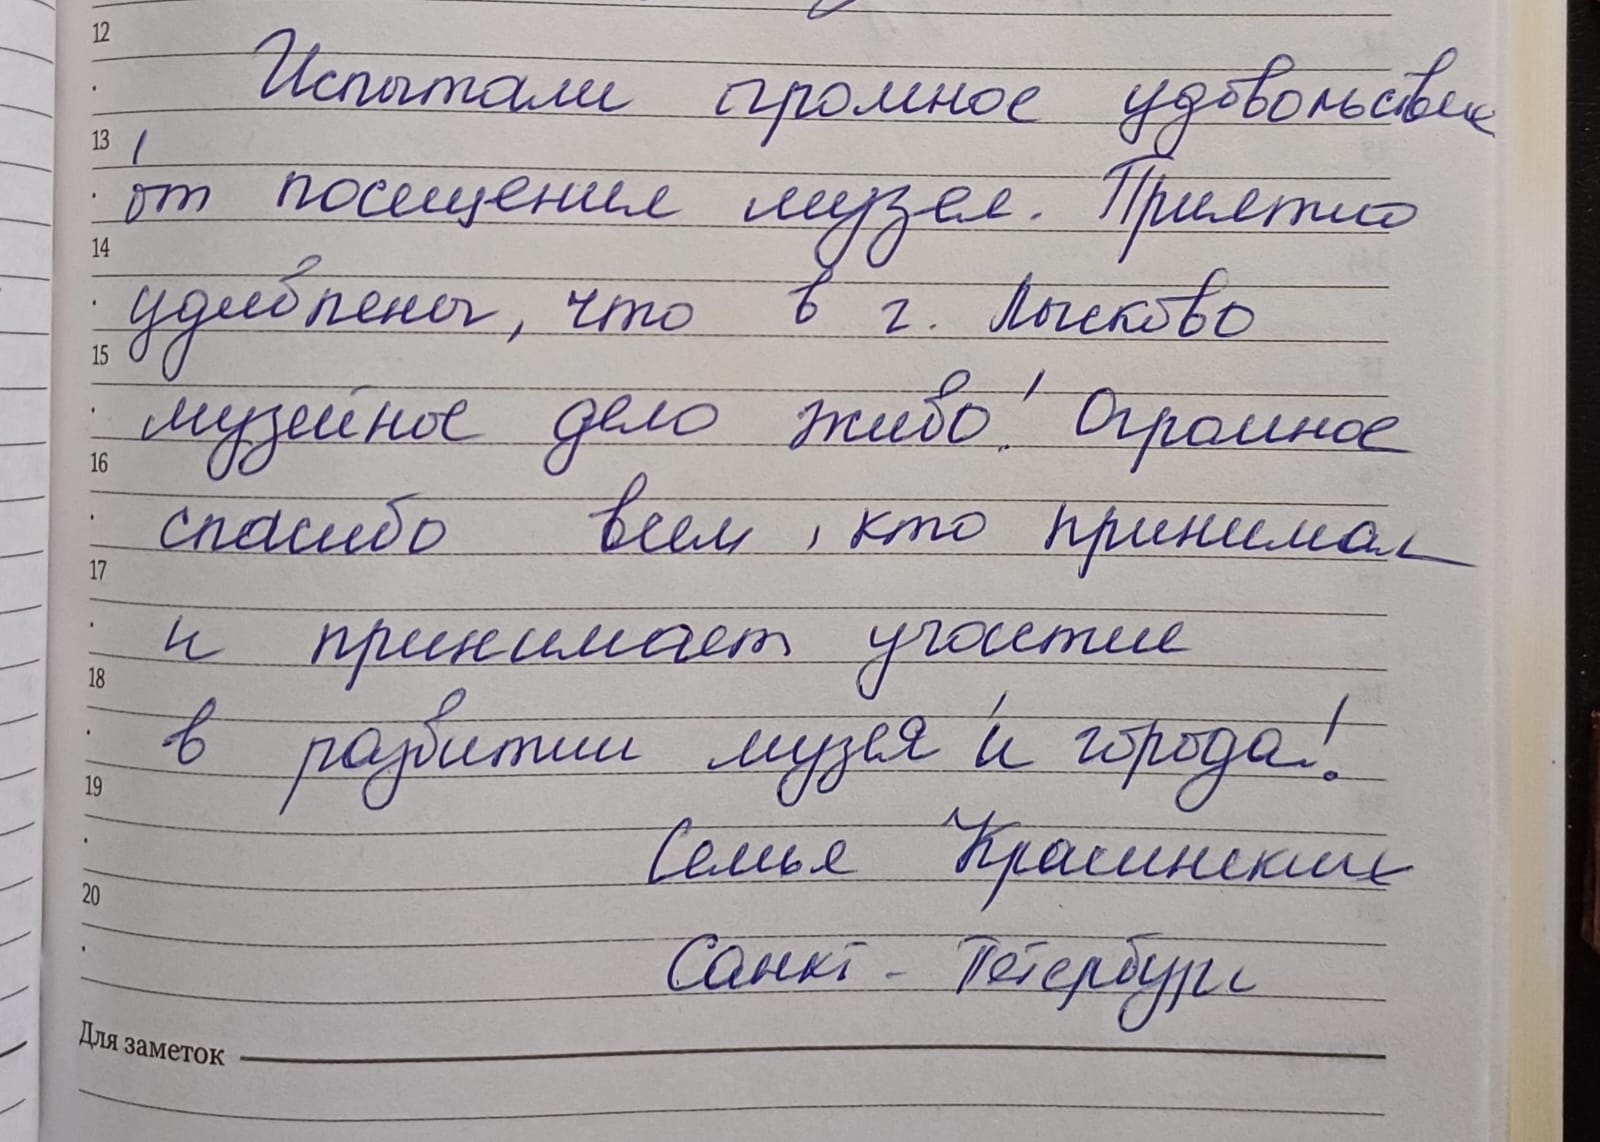 12
Испытали огромное удовольствие
13
от посещения музея. Приятно
14
удивлены, что в г. Лысково
15
музейное дело живо! Огромное
16
спасибо всем, кто принимал
17
и принимает участие
18
в развитии музея и города!
19
Семья Красинских
20
Санкт - Петербург
Для заметок